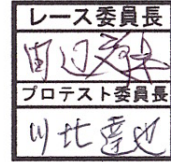 レース委員長
田辺
プロテスト委員長
川北達也